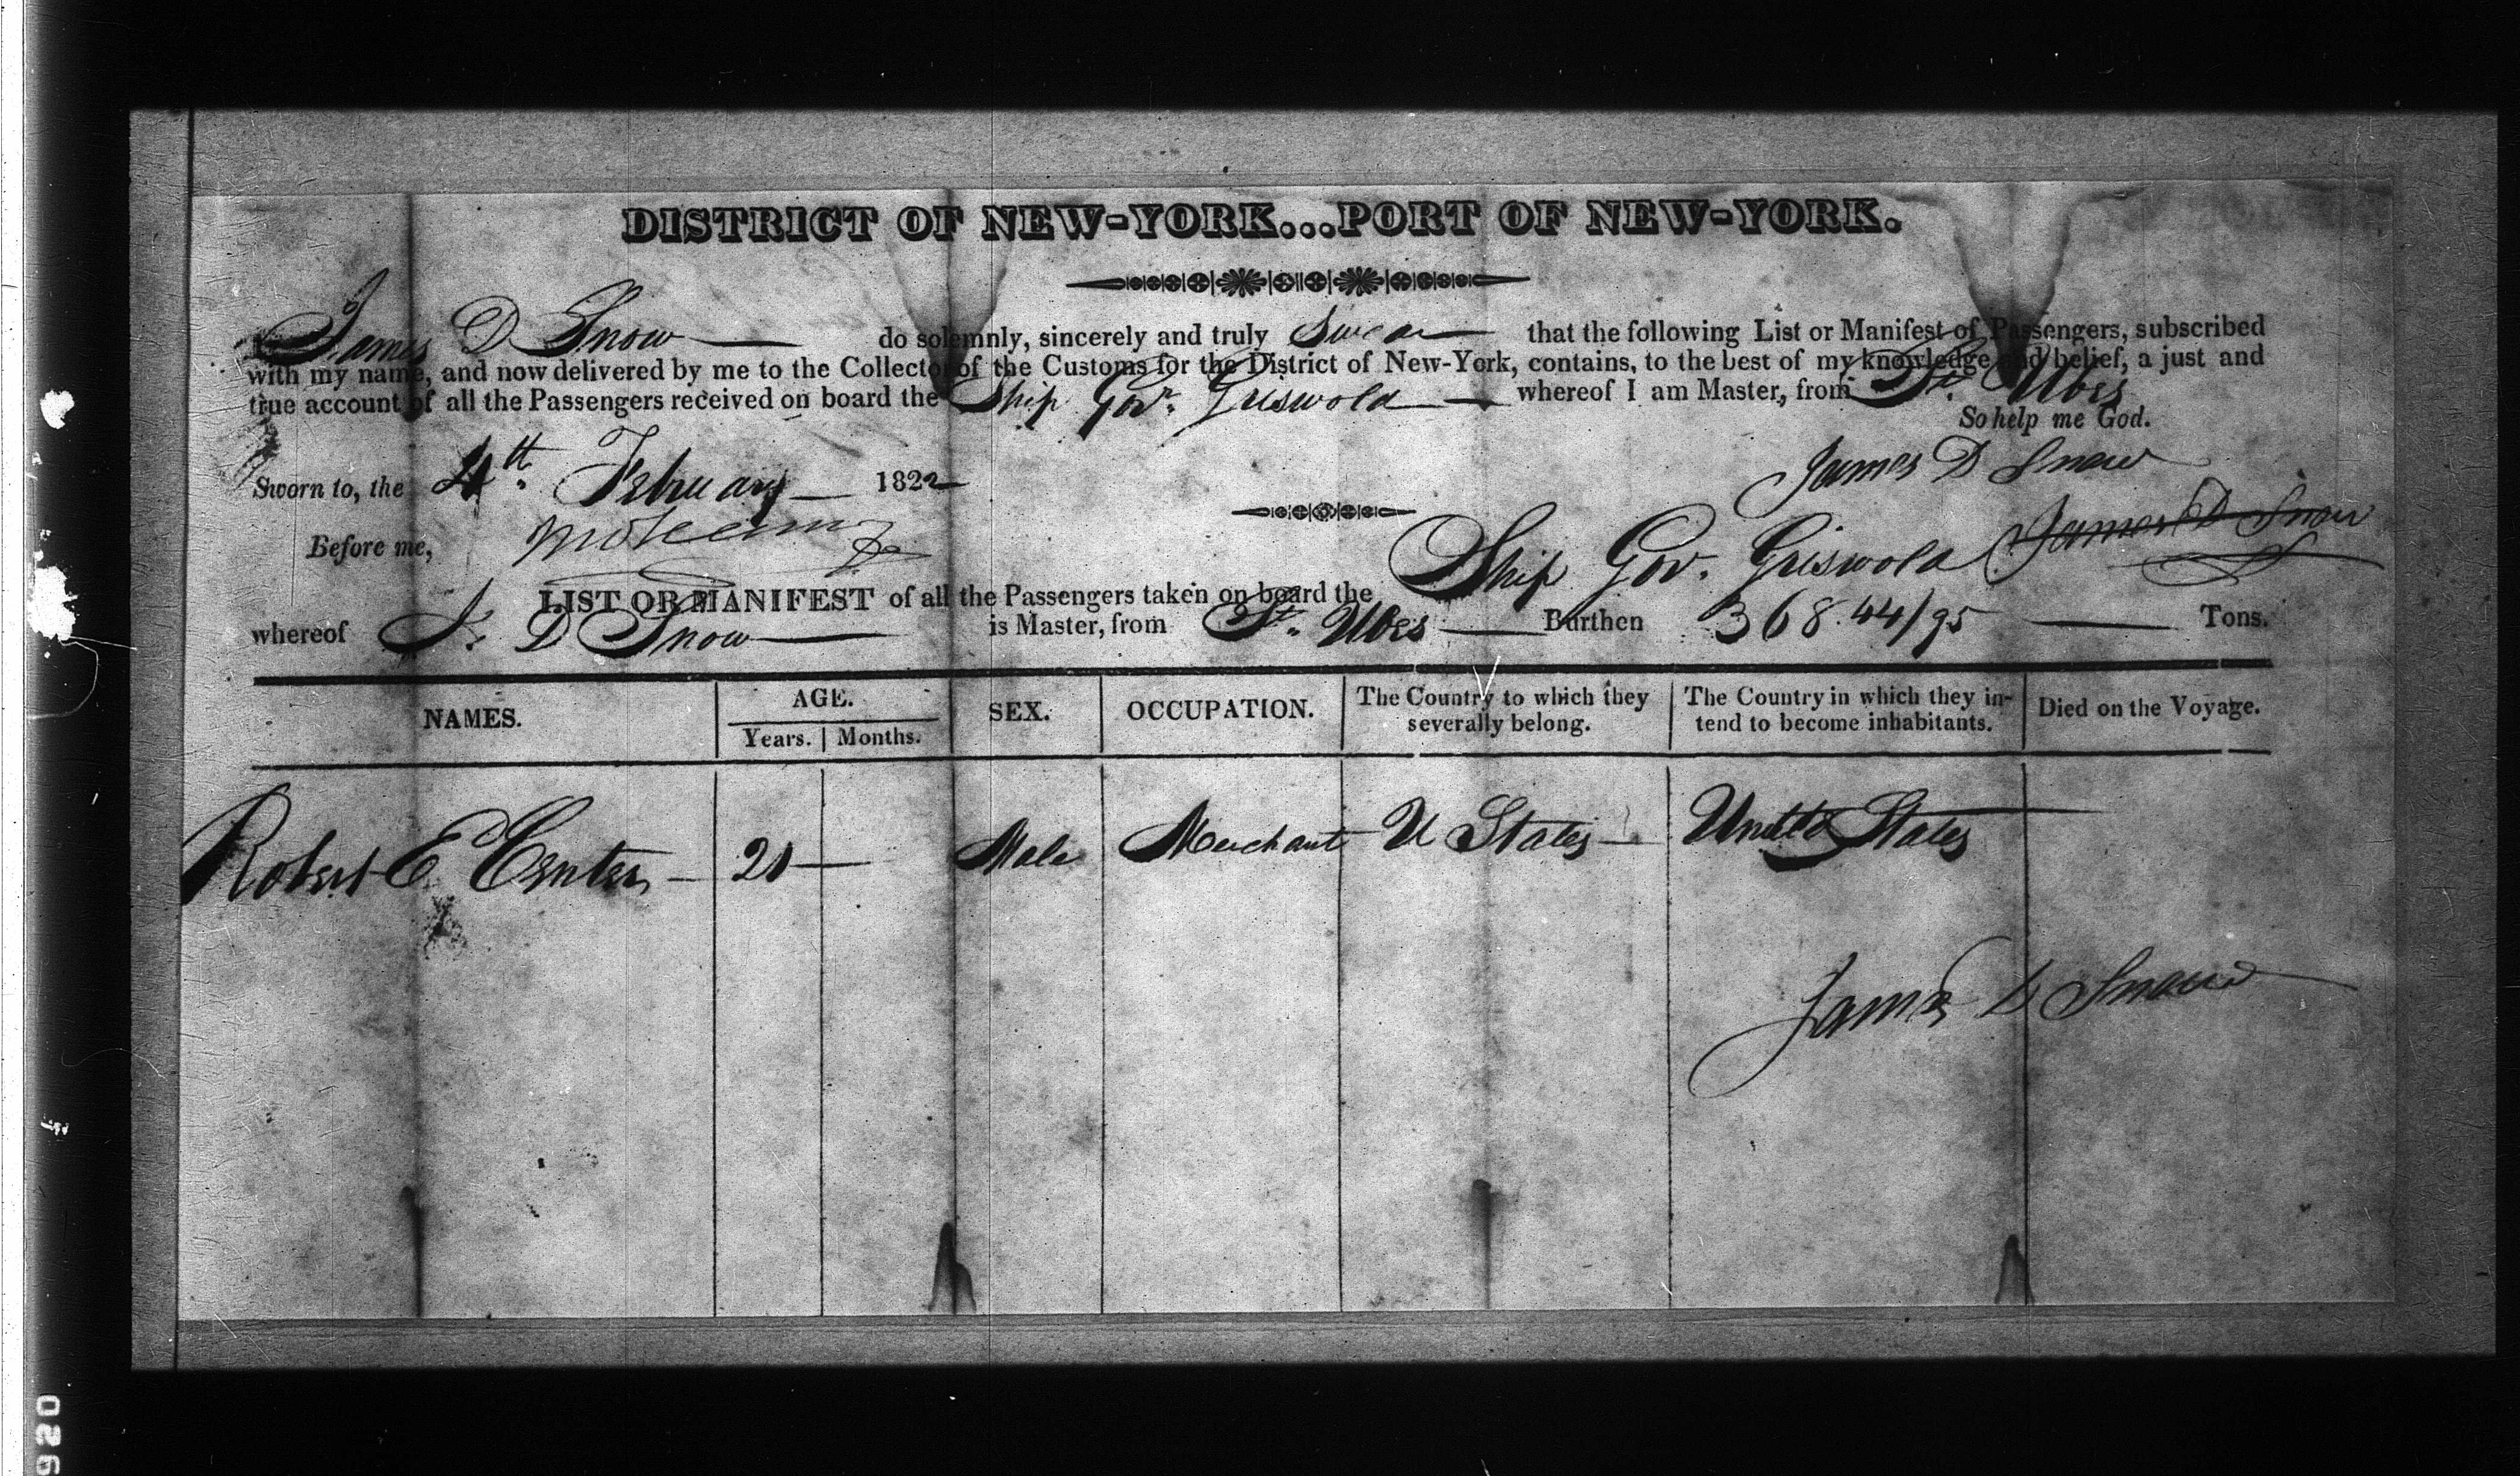 DISTRICT OF NEW-YORK...PORT OF NEW-YORK.
James D Snow do solemnly, sincerely and truly Swear that the following List or Manifest of Passengers, subscribed
with my name, and now delivered by me to the Collector of the Customs for the District of New-York, contains, to the best of my knowledge and belief, a just and
true account of all the Passengers received on board the Ship Gov. Griswold whereof I am Master, from St. Ubes
So help me God.
James D Snow
Sworn to, the 4th. February 1822
Before me,
James D Snow
LIST OR MANIFEST of all the Passengers taken on board the Ship Gov. Griswold
whereof J. D Snow is Master, from St. Ubes Burthen 368.44/95 Tons.
NAMES. AGE. SEX. OCCUPATION. The Country to which they severally belong. The Country in which they intend to become inhabitants. Died on the Voyage.
Years. Months.
Robert E Center 21 Male Merchant U States United States
James D Snow
920